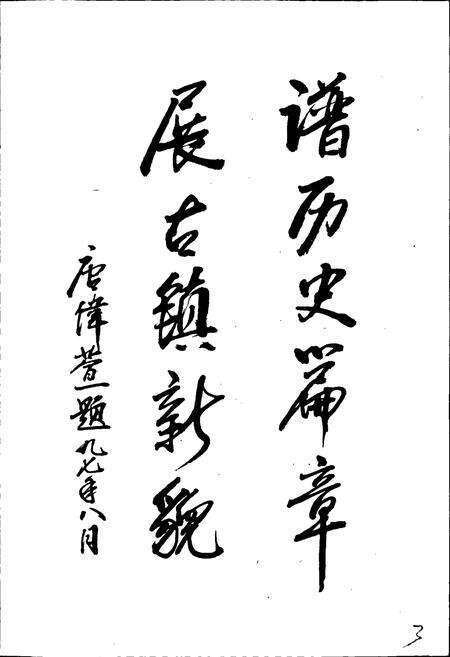 谱历史篇章
展古镇新貌
唐偉萱题九七年八月
3